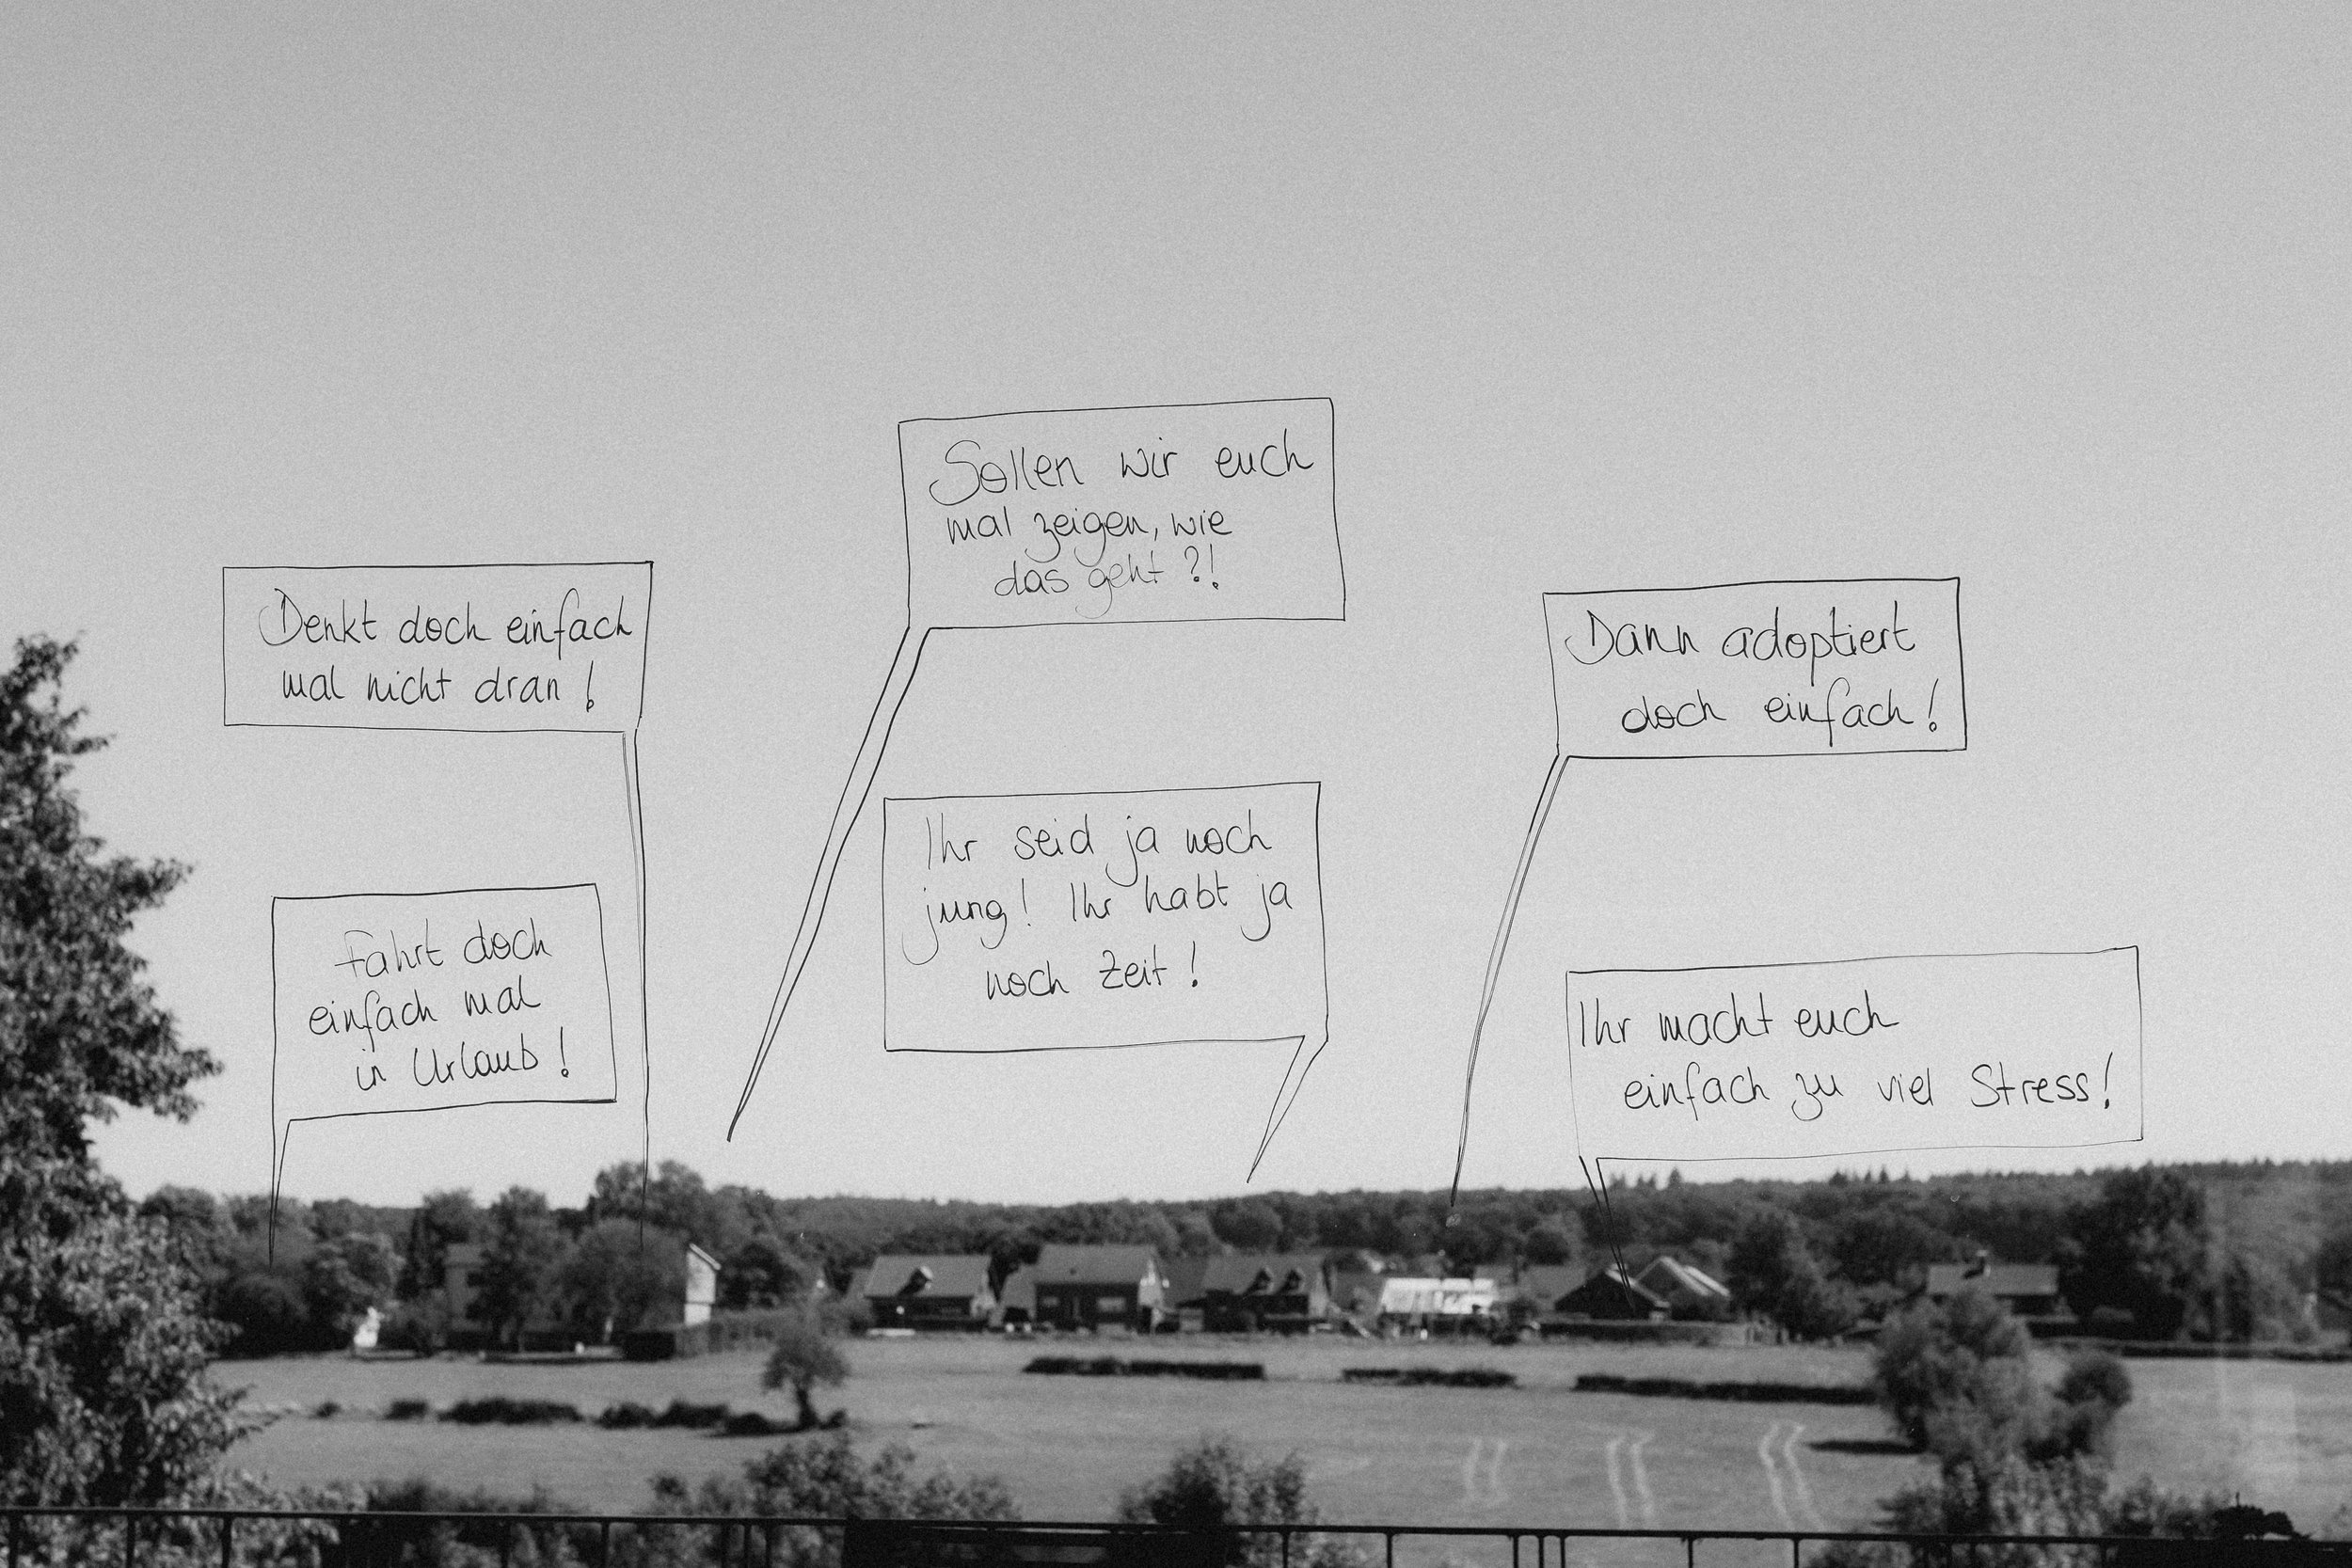 Denkt doch einfach
mal nicht dran!
Fahrt doch
einfach mal
in Urlaub!
Sollen wir euch
mal zeigen, wie
das geht?!
Ihr seid ja noch
jung! Ihr habt ja
noch Zeit!
Dann adoptiert
doch einfach!
Ihr macht euch
einfach zu viel Stress!